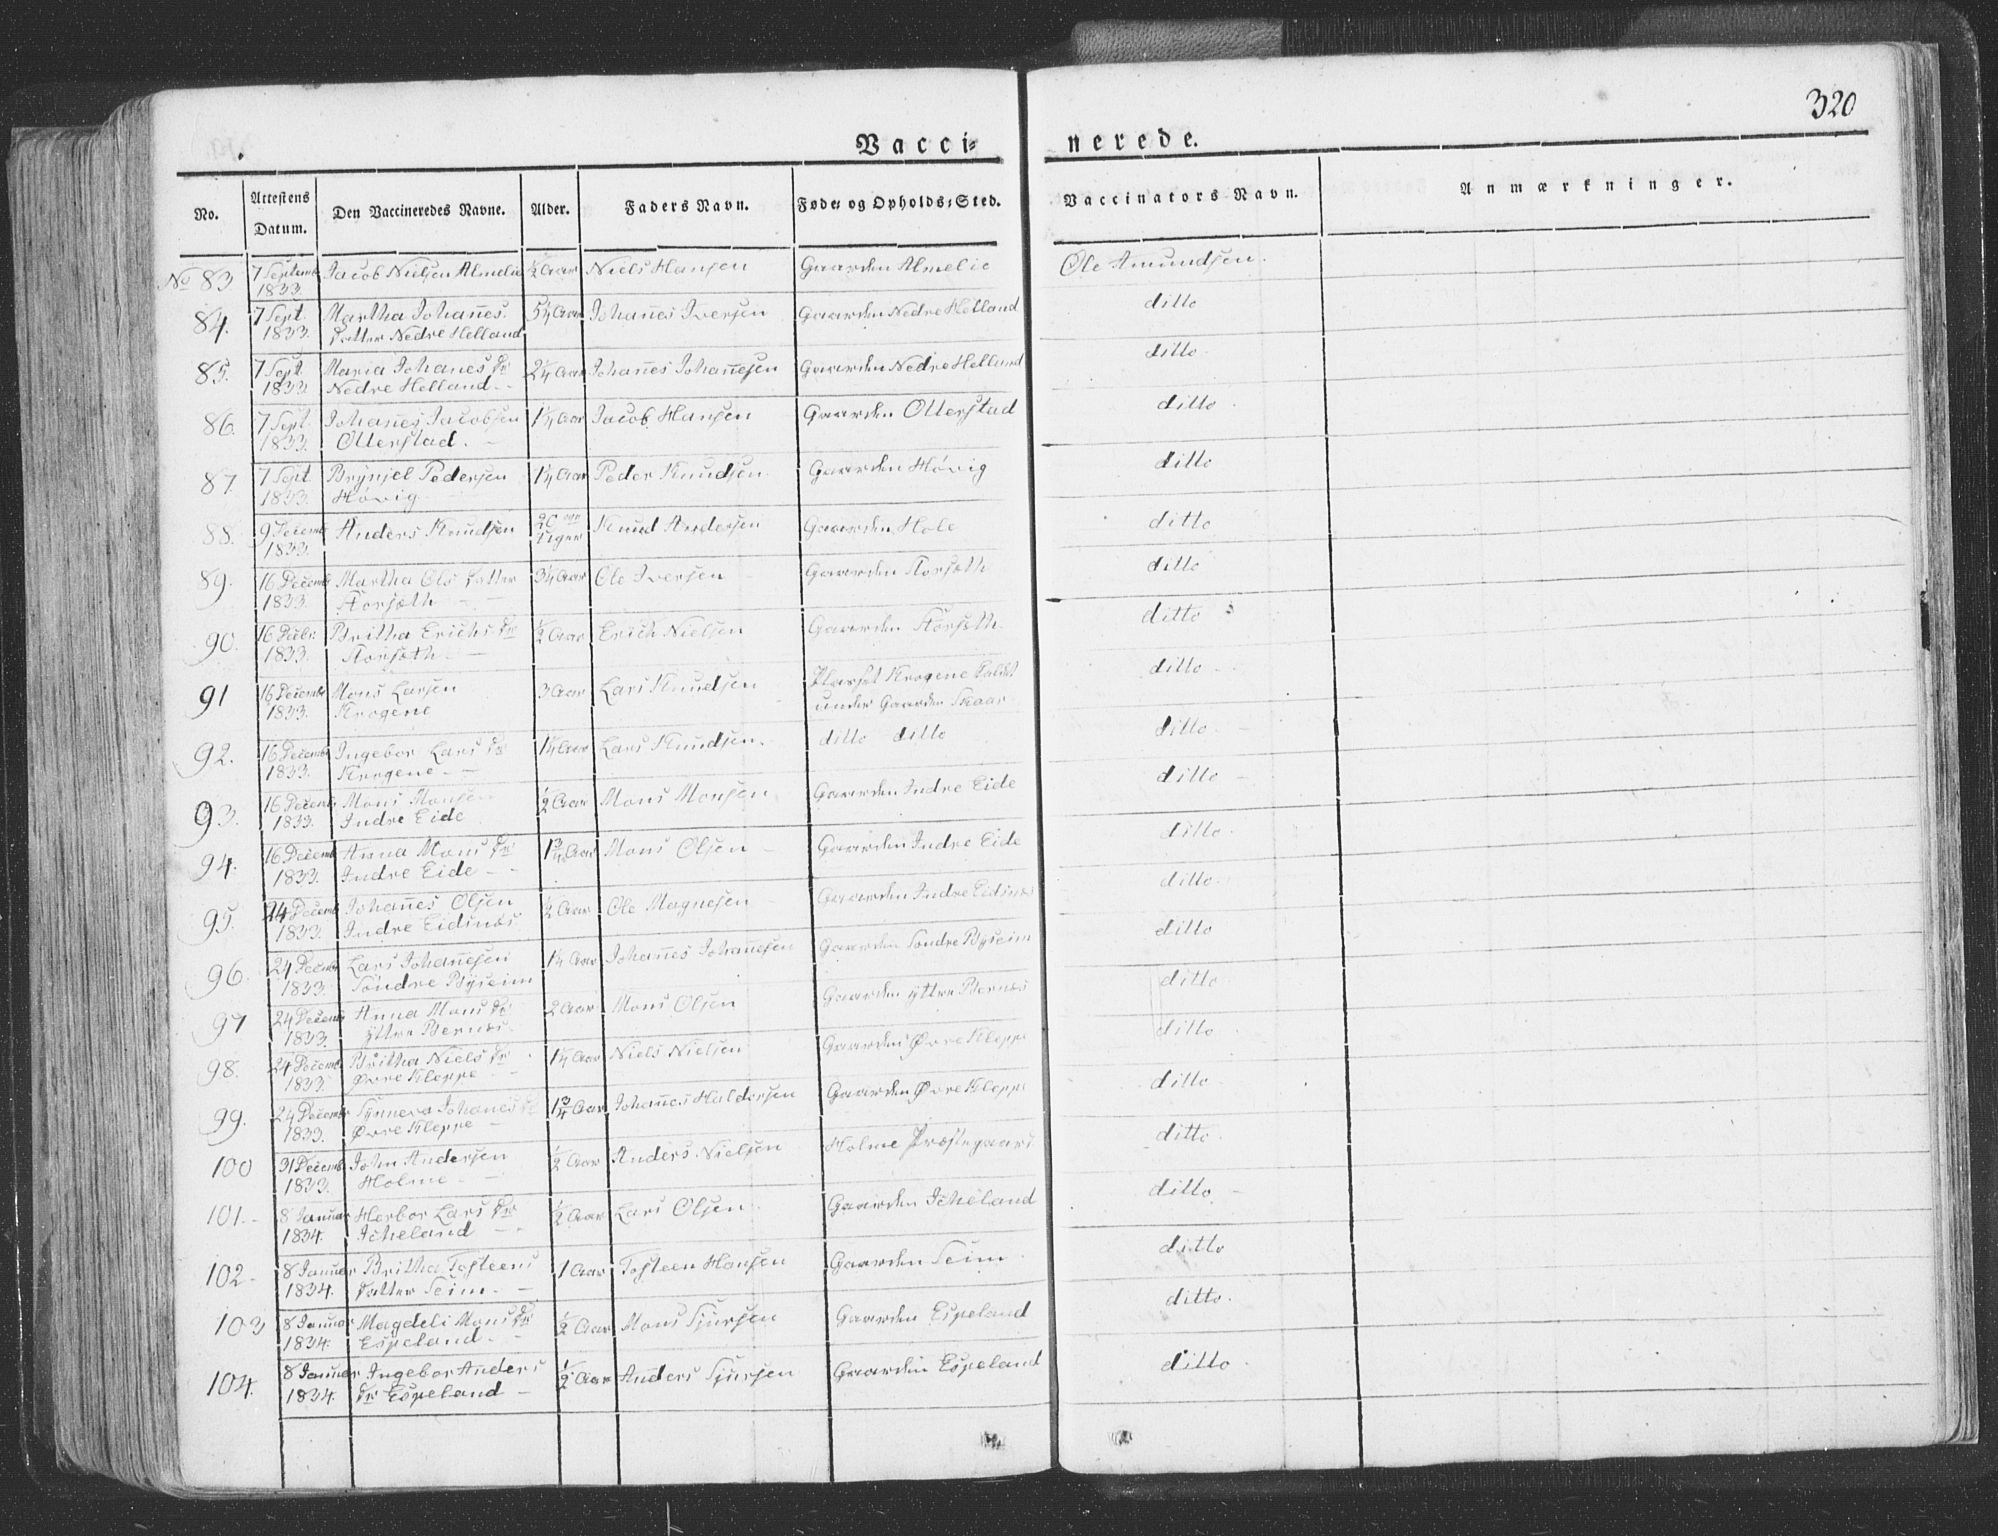 320
Vacci= nerede.
No. Attestens Datum. Den Vaccineredes Navne. Alder. Faders Navn. Føde= og Opholds=Sted. Vaccinators Navn. Anmærkninger.
No 83 7 Septemb 1833. Jacob Nielsen Almelie ½ Aar Niels Hansen Gaarden Almelie Ole Amundsen.
84. 7 Sept. 1833. Martha Johan̄es. Datter Nedre Helland 5¼ Aar Johan̄es Iversen Gaarden Nedre Helland ditto
85. 7 Sept. 1833. Maria Johanes Dr Nedre Helland 2¼ Aar Johan̄es Johan̄esen Gaarden Nedre Helland ditto
86. 7 Sept. 1833. Johan̄es Jacobsen Otterstad. 1¼ Aar Jacob Hansen Gaarden Otterstad ditto
87. 7 Sept 1833. Brynjel Pedersen Høvig 1¼ Aar Peder Knudsen Gaarden Høvig ditto
88. 9 Decemb 1833. Anders Knudsen 20 Uger Knud Andersen Gaarden Hole ditto
89. 16 Decemb 1833. Martha Ols Datter 3¼ Aar Ole Iversen Gaarden ditto
90. 16 Decbr. 1833. Britha Erichs Dr ½ Aar Erich Nielsen Gaarden ditto
91 16 Decemb 1833. Mons Larsen Krogene 3 Aar Lars Knudsen Pladset Krogene kaldet under Gaarden Skaar ditto
92. 16 Decemb 1833. Ingebor Lars Dr Krogene 1¼ Aar Lars Knudsen. ditto ditto ditto
93. 16 Decemb 1833. Mons Monsen Indre Eide ½ Aar Mons Monsen Gaarden Indre Eide ditto
94. 16 Decemb 1833. Anna Mons Dr Indre Eide 1¾ Aar Mons Olsen Gaarden Indre Eide ditto.
95. 24 Decemb 1833. Johan̄es Olsen Indre Eidsnæs ½ Aar Ole Magnesen Gaarden Indre Eidsnæs ditto.
96. 24 Decemb 1833. Lars Johan̄esen Søndre Byseim 1¼ Aar Johan̄es Johan̄esen Gaarden Søndre Byseim ditto
97 24 Decemb 1833. Anna Mons Dr yttre Bernæs. 2 Aar Mons Olsen Gaarden yttre Bernæs ditto
98. 24 Decemb 1833. Britha Niels Dr Øvre Kleppe 1¼ Aar Niels Nielsen Gaarden Øvre Kleppe ditto
99. 24 Decemb 1833. Synneva Johanes Dr Øvre Kleppe 1¾ Aar Johan̄es Haldorsen Gaarden Øvre Kleppe ditto
100 31 Decemb 1833. John Andersen Holme ½ Aar Anders Nielsen Holme Præstegaard ditto.
101. 8 Januar 1834. Herbor Lars Dr Icheland ½ Aar Lars Olsen Gaarden Icheland ditto.
102. 8 Januar 1834. Britha Tosteens Datter Seim. 1 Aar Tosteen Hansen Gaarden Seim ditto
103 8 Januar 1834. Magdeli Mons Dr Espeland. ½ Aar Mons Sjursen Gaarden Espeland ditto.
104. 8 Januar 1834. Ingebor Anders Dr Espeland ½ Aar Anders Sjursen Gaarden Espeland ditto.